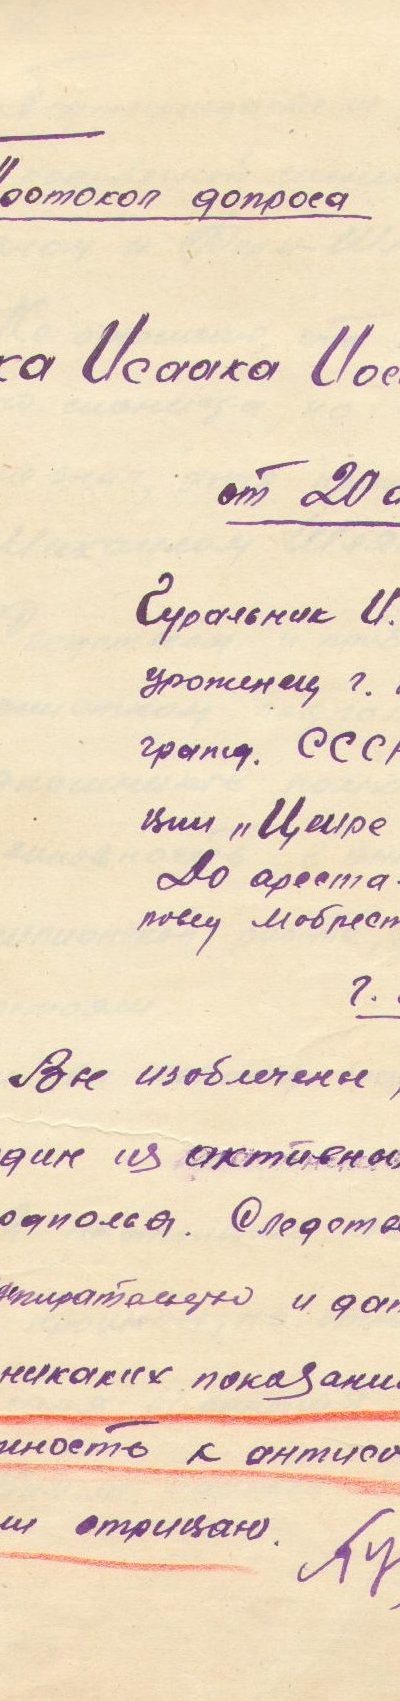 Протокол допроса
ка Исаака Иос
от 20 а
Гуральник И.
уроженец г.
гражд. СССР
ции „Цеире
До ареста-
повец Мобрест
г.
Вы изобличены
один из активных
одполья. Следств
пирательную и дат
никаких показани
ность к антисо
ии отрицаю.